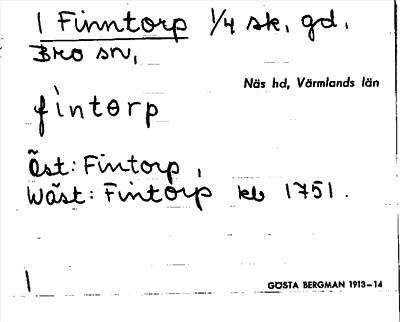 1 Finntorp 1/4 sk, gd,
Bro sn,
Näs hd, Värmlands län
fintorp
Öst: Fintorp,
Wäst: Fintorp kb 1751.
GÖSTA BERGMAN 1913-14